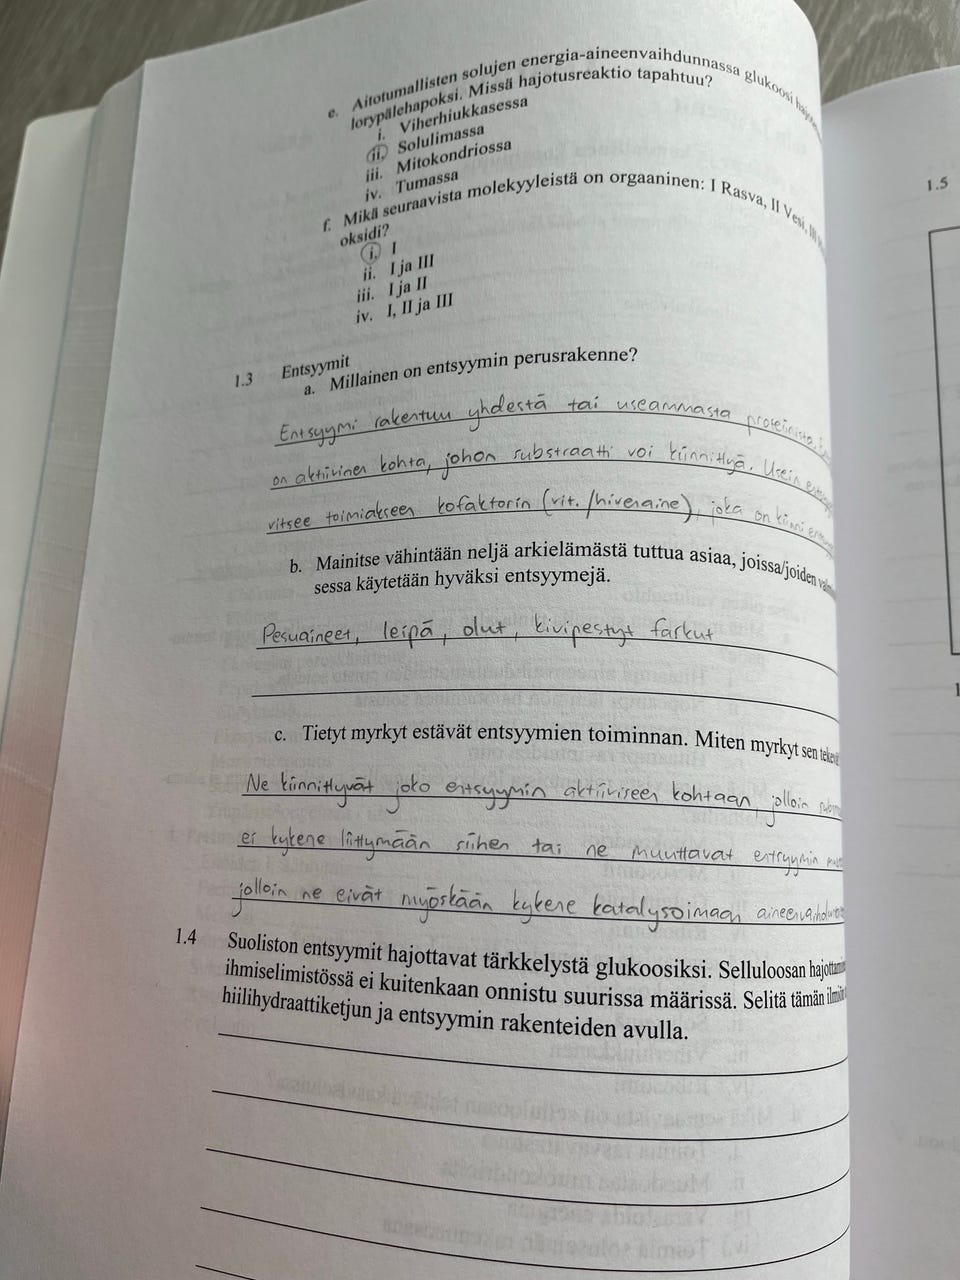 e. Aitotumallisten solujen energia-aineenvaihdunnassa glukoosi
lorypälehapoksi. Missä hajotusreaktio tapahtuu?
i. Viherhiukkasessa
ii. Solulimassa
iii. Mitokondriossa
iv. Tumassa
f. Mikä seuraavista molekyyleistä on orgaaninen: I Rasva, II Vesi, III
oksidi?
i. I
ii. I ja III
iii. I ja II
iv. I, II ja III
1.5
1.3 Entsyymit
a. Millainen on entsyymin perusrakenne?
Entsyymi rakentuu yhdestä tai useammasta proteiinista.
on aktiivinen kohta, johon substraatti voi kiinnittyä. Usein
vitsee toimiakseen kofaktorin (vit./hivenaine), joka on kiinni
b. Mainitse vähintään neljä arkielämästä tuttua asiaa, joissa/joiden
sessa käytetään hyväksi entsyymejä.
Pesuaineet, leipä, olut, kivipestyt farkut
c. Tietyt myrkyt estävät entsyymien toiminnan. Miten myrkyt sen
Ne kiinnittyvät joko entsyymin aktiiviseen kohtaan, jolloin
ei kykene liittymään siihen tai ne muuttavat entsyymin
jolloin ne eivät myöskään kykene katalysoimaan
1.4 Suoliston entsyymit hajottavat tärkkelystä glukoosiksi. Selluloosan
ihmiselimistössä ei kuitenkaan onnistu suurissa määrissä. Selitä tämän
hiilihydraattiketjun ja entsyymin rakenteiden avulla.